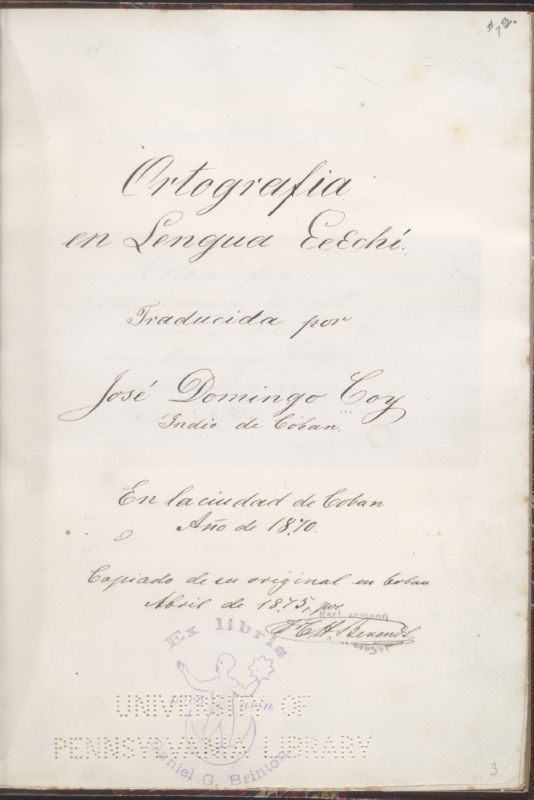 Ortografia
en Lengua ƐeƐchí.
Traducida por
José Domingo Coy
Indio de Coban.
En la ciudad de Coban
Año de 1870.
Copiado de su original en Coban
Abril de 1875, por
Karl Hermann
C H Berendt
Ex libris
UNIVERSITY OF
PENNSYLVANIA LIBRARY
Daniel G. Brinton
3